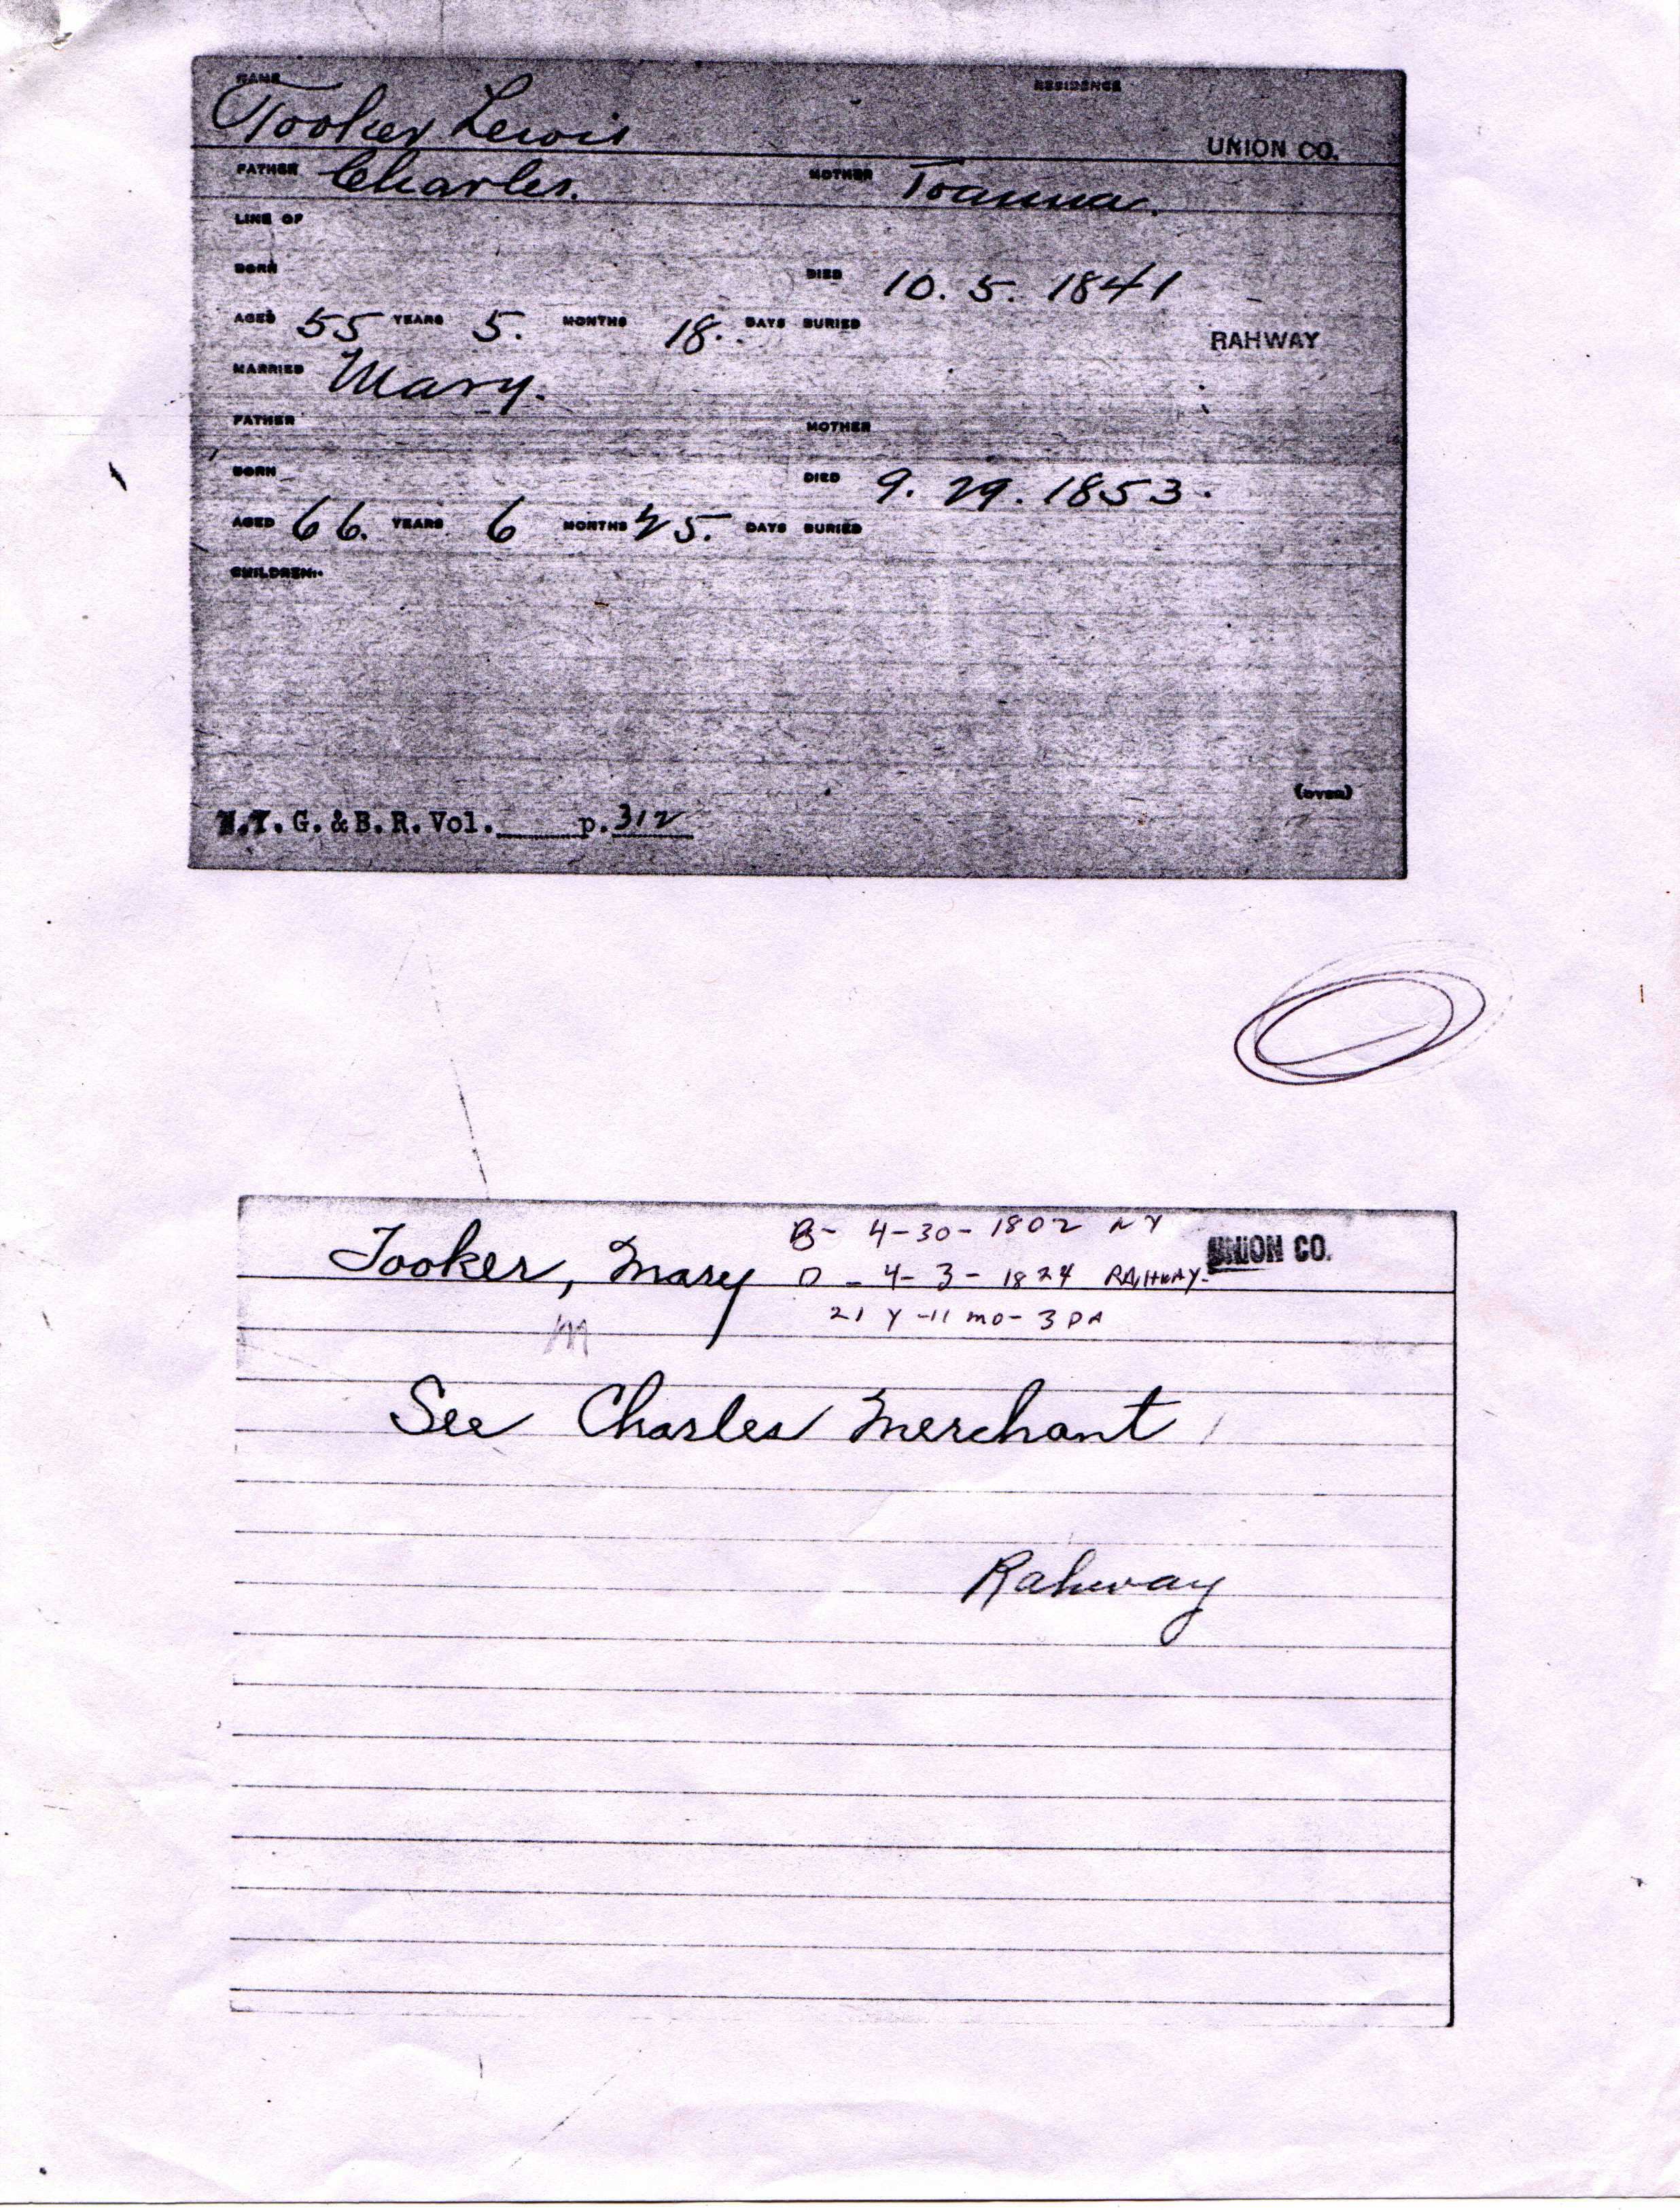 NAME RESIDENCE
Tooker Lewis UNION CO.
FATHER Charles. MOTHER Joanna.
LINE OF
BORN DIED 10. 5. 1841
AGED 55 YEARS 5. MONTHS 18.. DAYS BURIED RAHWAY
MARRIED Mary.
FATHER MOTHER
BORN DIED 9. 29. 1853.
AGED 66. YEARS 6 MONTHS 25. DAYS BURIED
CHILDREN:
(OVER)
N.Y. G. & B. R. Vol. p. 312
B- 4-30-1802 NY
Tooker, Mary D - 4-3-1824 RAHWAY- UNION CO.
21 Y -11 mo- 3 DA
M
See Charles Merchant
Rahway